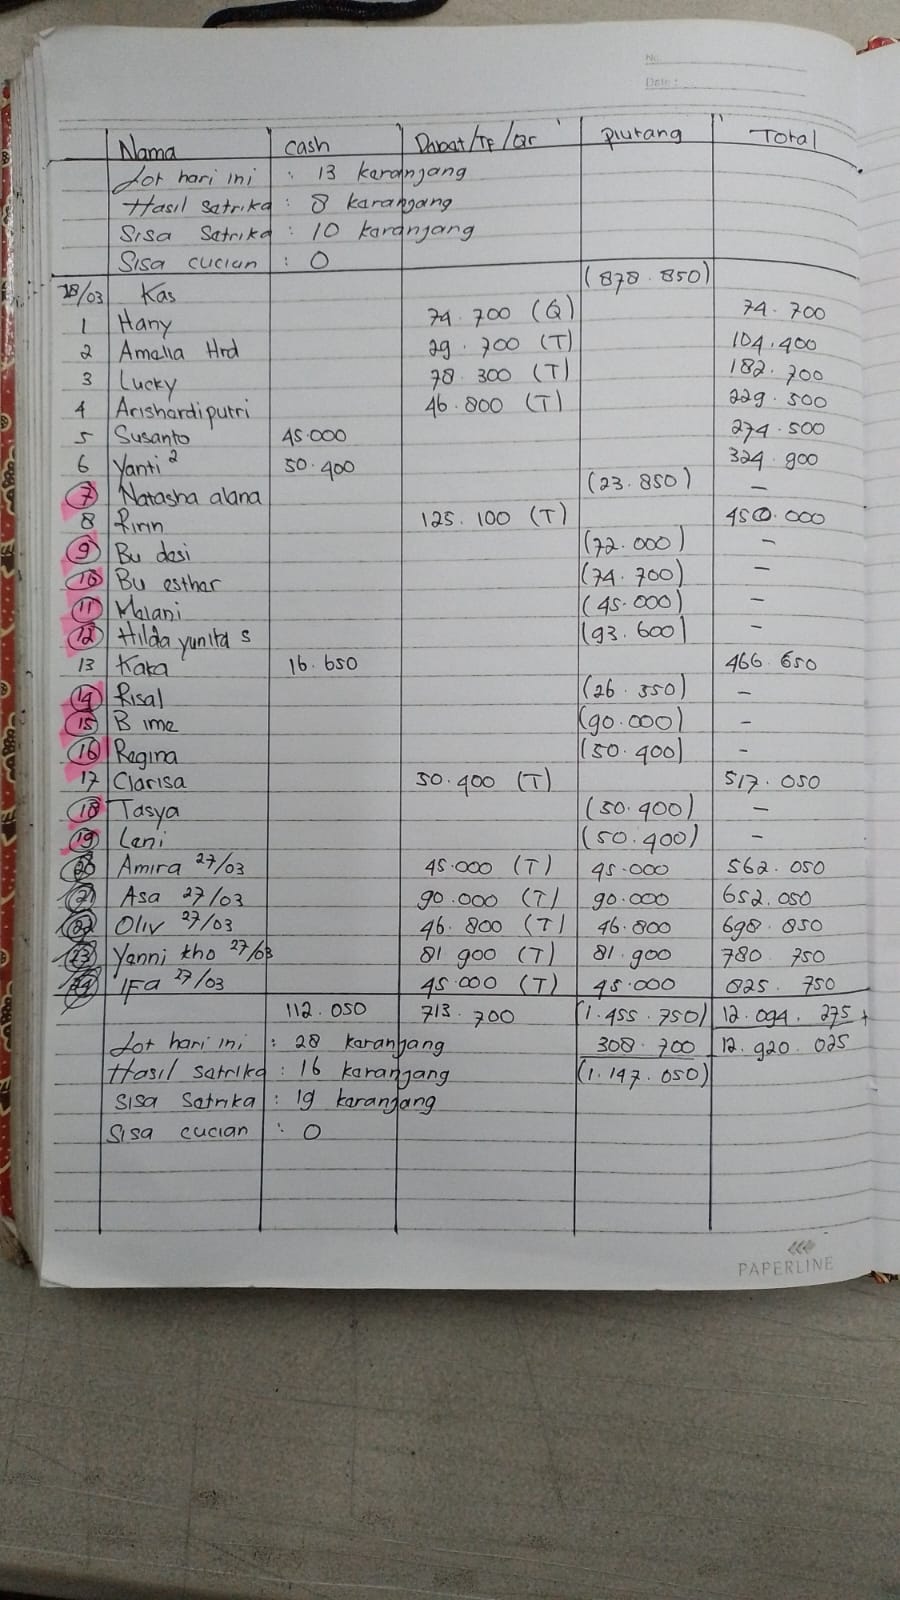 No.
Date :
Nama cash Debet/TF/Qr piutang Total
Lot hari ini : 13 karanjang
Hasil Setrika : 8 karanjang
Sisa Setrika : 10 karanjang
Sisa cucian : 0
28/03 Kas (878.850)
1 Hany 74.700 (Q) 74.700
2 Amelia Hrd 29.700 (T) 104.400
3 Lucky 78.300 (T) 182.700
4 Arishardiputri 46.800 (T) 229.500
5 Susanto 45.000 274.500
6 Yanti 2 50.400 324.900
7 Natasha alana (23.850) –
8 Ririn 125.100 (T) 450.000
9 Bu desi (72.000) –
10 Bu esther (74.700) –
11 Melani (45.000) –
12 Hilda yunita s (93.600) –
13 Kaka 16.650 466.650
14 Risal (26.350) –
15 B ime (90.000) –
16 Regina (50.400) –
17 Clarisa 50.400 (T) 517.050
18 Tasya (50.400) –
19 Leni (50.400) –
20 Amira 27/03 45.000 (T) 45.000 562.050
21 Asa 27/03 90.000 (T) 90.000 652.050
22 Oliv 27/03 46.800 (T) 46.800 698.850
23 Yenni kho 27/03 81.900 (T) 81.900 780.750
24 IFa 27/03 45.000 (T) 45.000 825.750
112.050 713.700 (1.455.750) 12.094.275 +
Lot hari ini : 28 karanjang 308.700 12.920.025
Hasil Setrika : 16 karanjang (1.147.050)
Sisa Setrika : 19 karanjang
Sisa cucian : 0
PAPERLINE